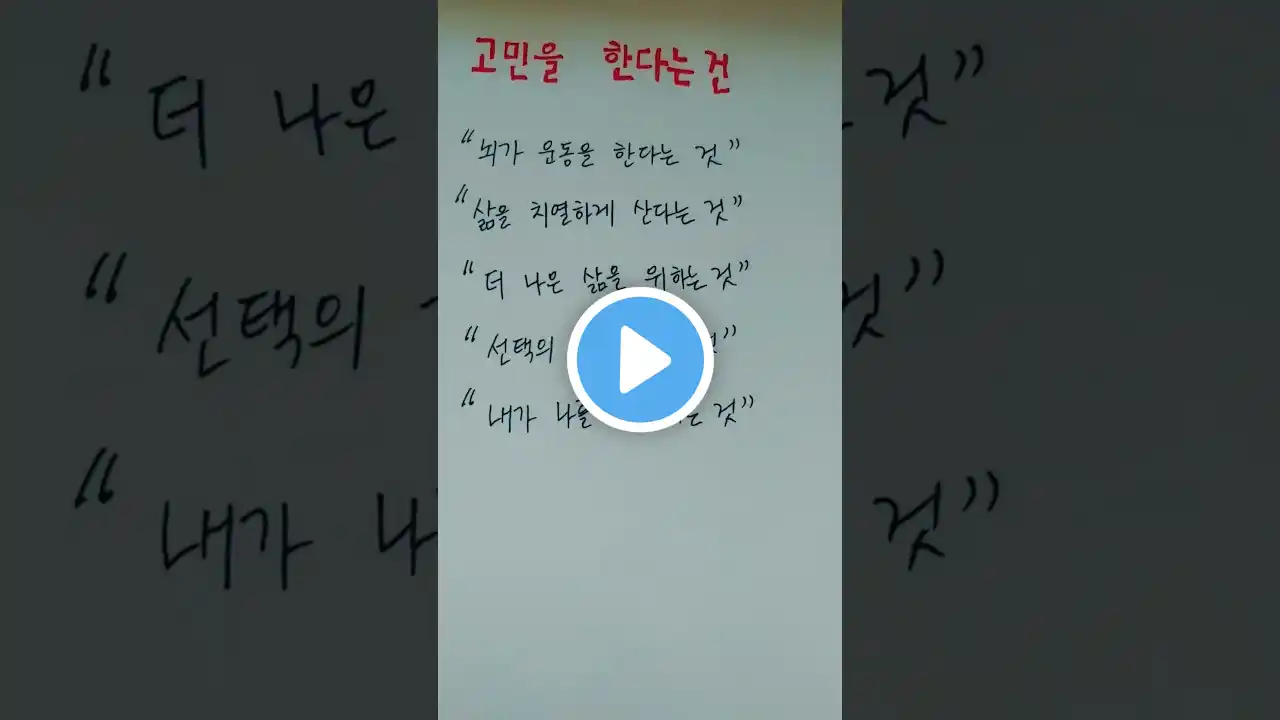 고민을 한다는건
"뇌가 운동을 한다는 것"
"삶을 치열하게 산다는 것"
"더 나은 삶을 위하는 것"
"선택의
"내가 나를 것"